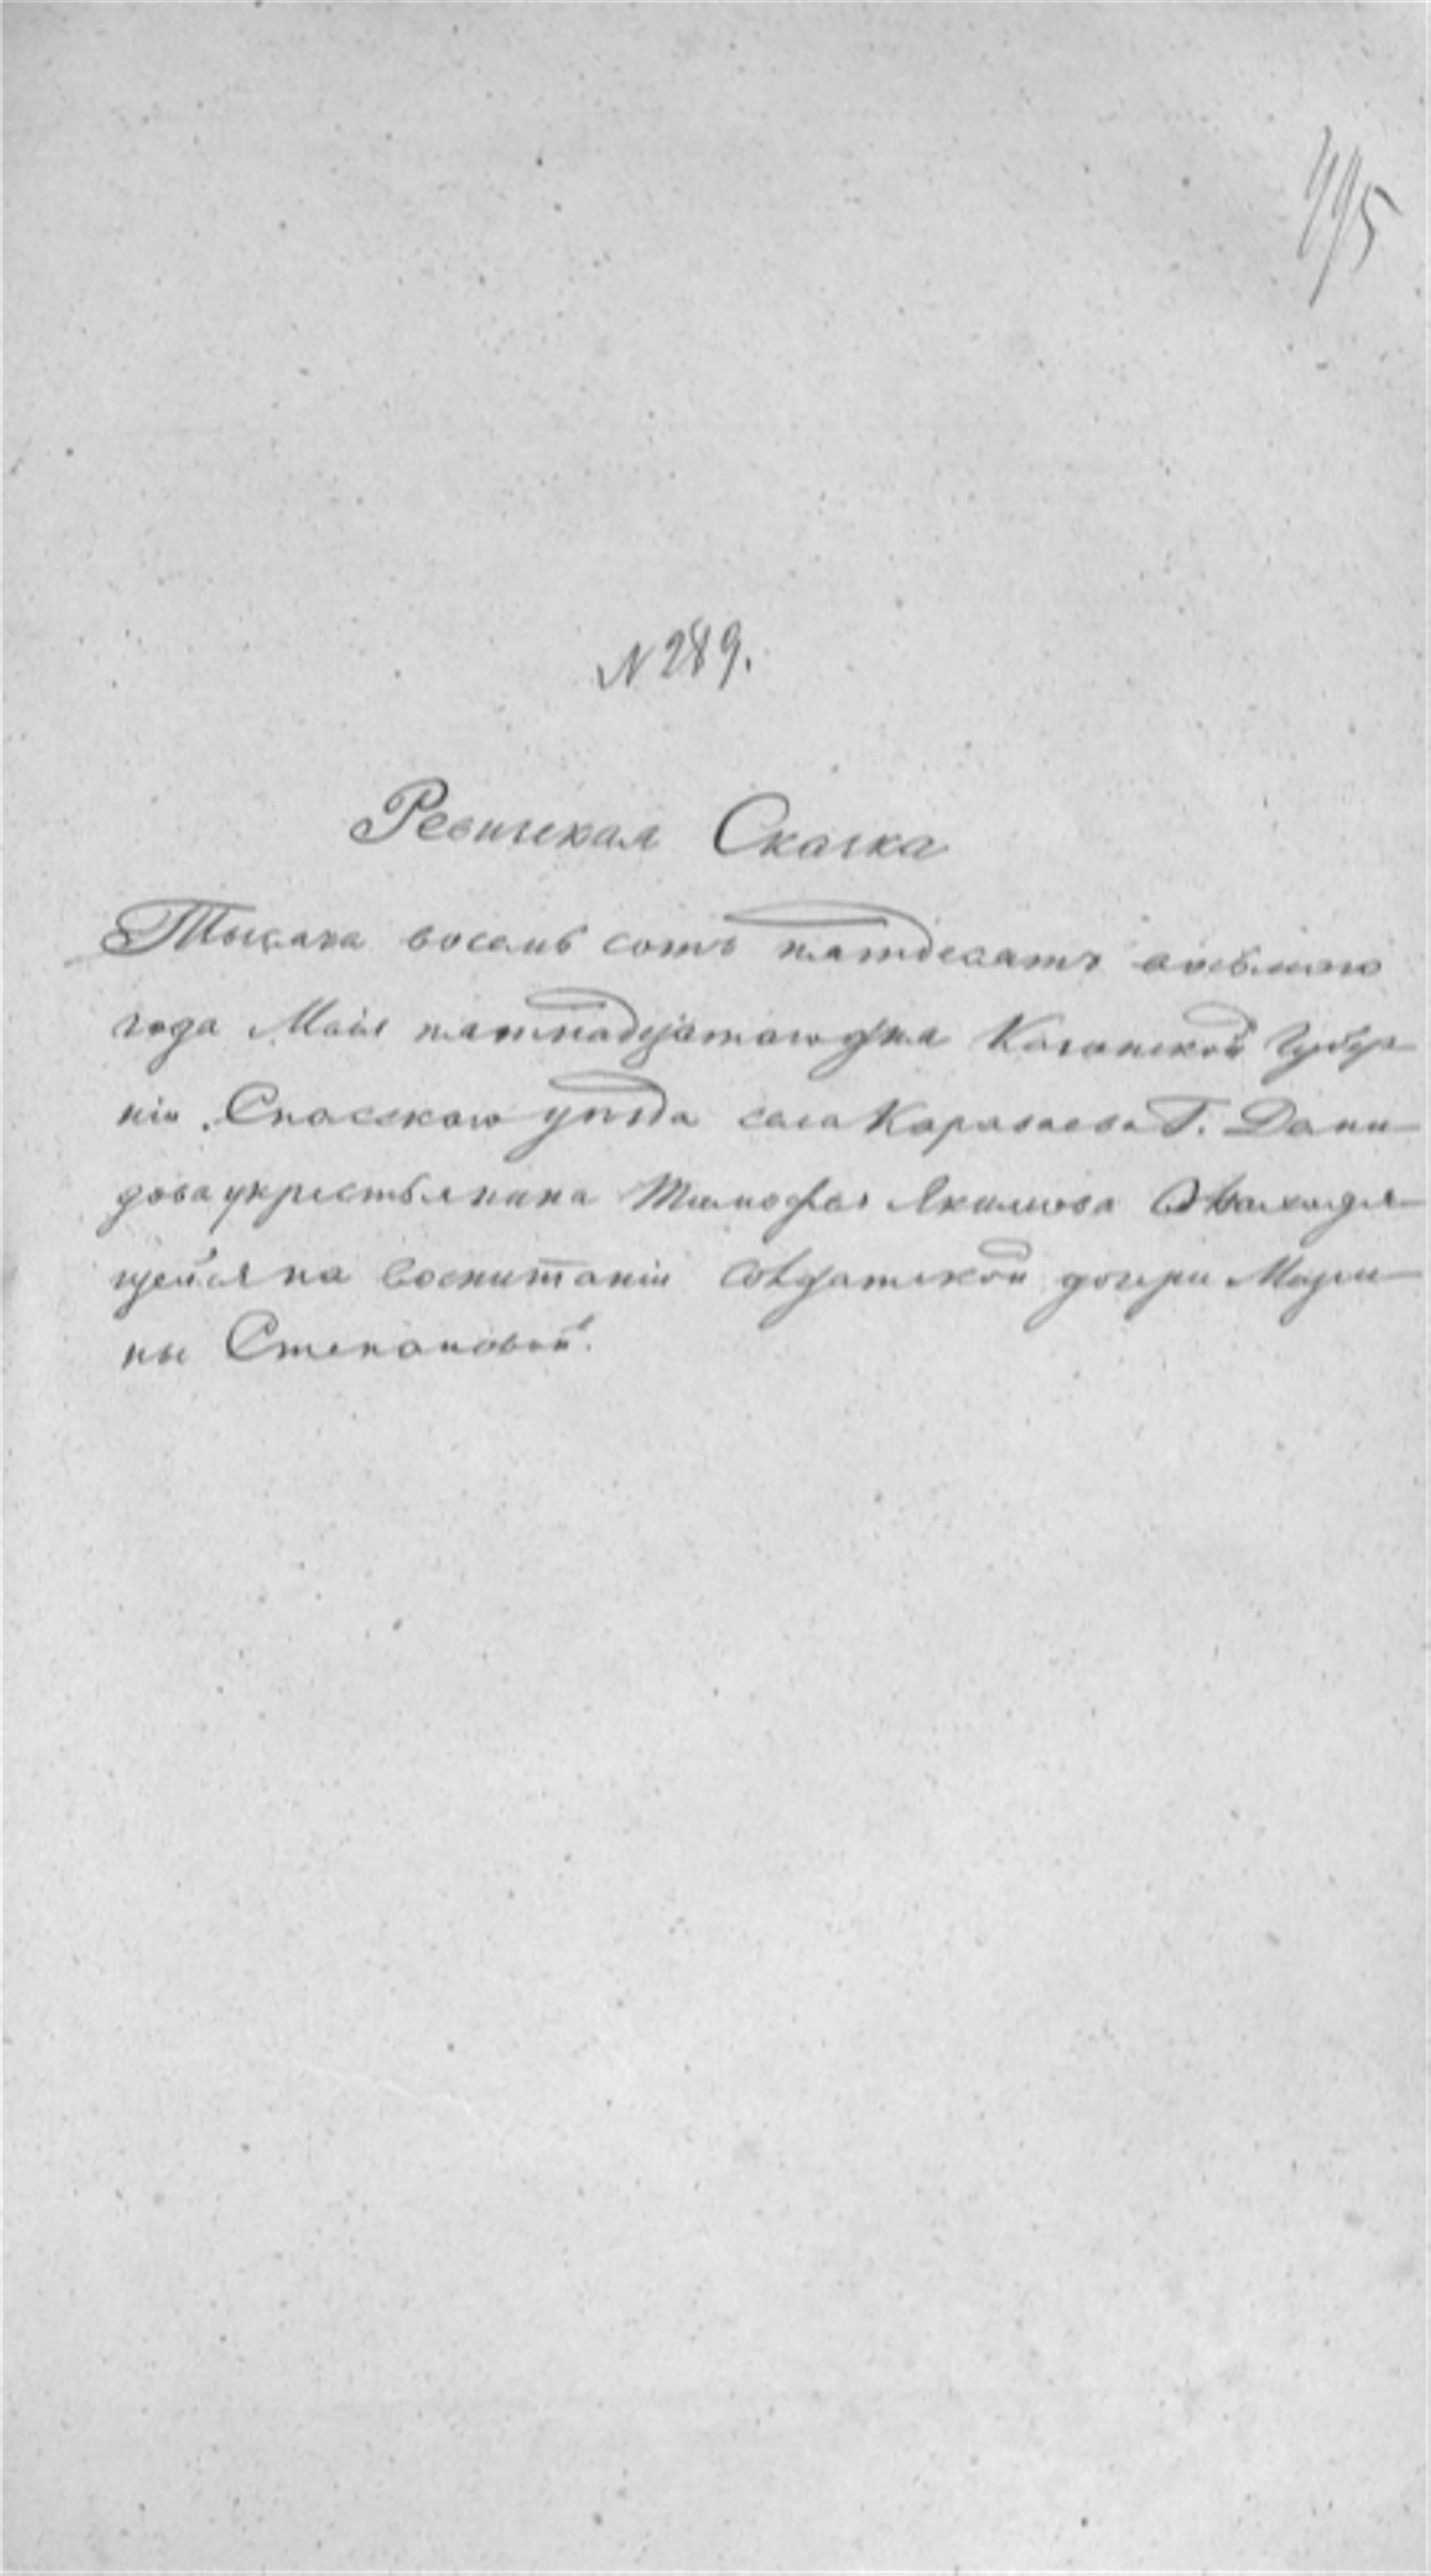 495
N 289.
Ревизская Сказка
Тысяча восемь сотъ пятдесятъ осьмаго
года Маія пятнадцатаго дня Казанской Губер
ніи Спасскаго уѣзда села Караваева Г. Дани
дова у крестьянина Тимофея Якимова
щейся на воспитаніи солдатской дочери Мари
ны Степановой.